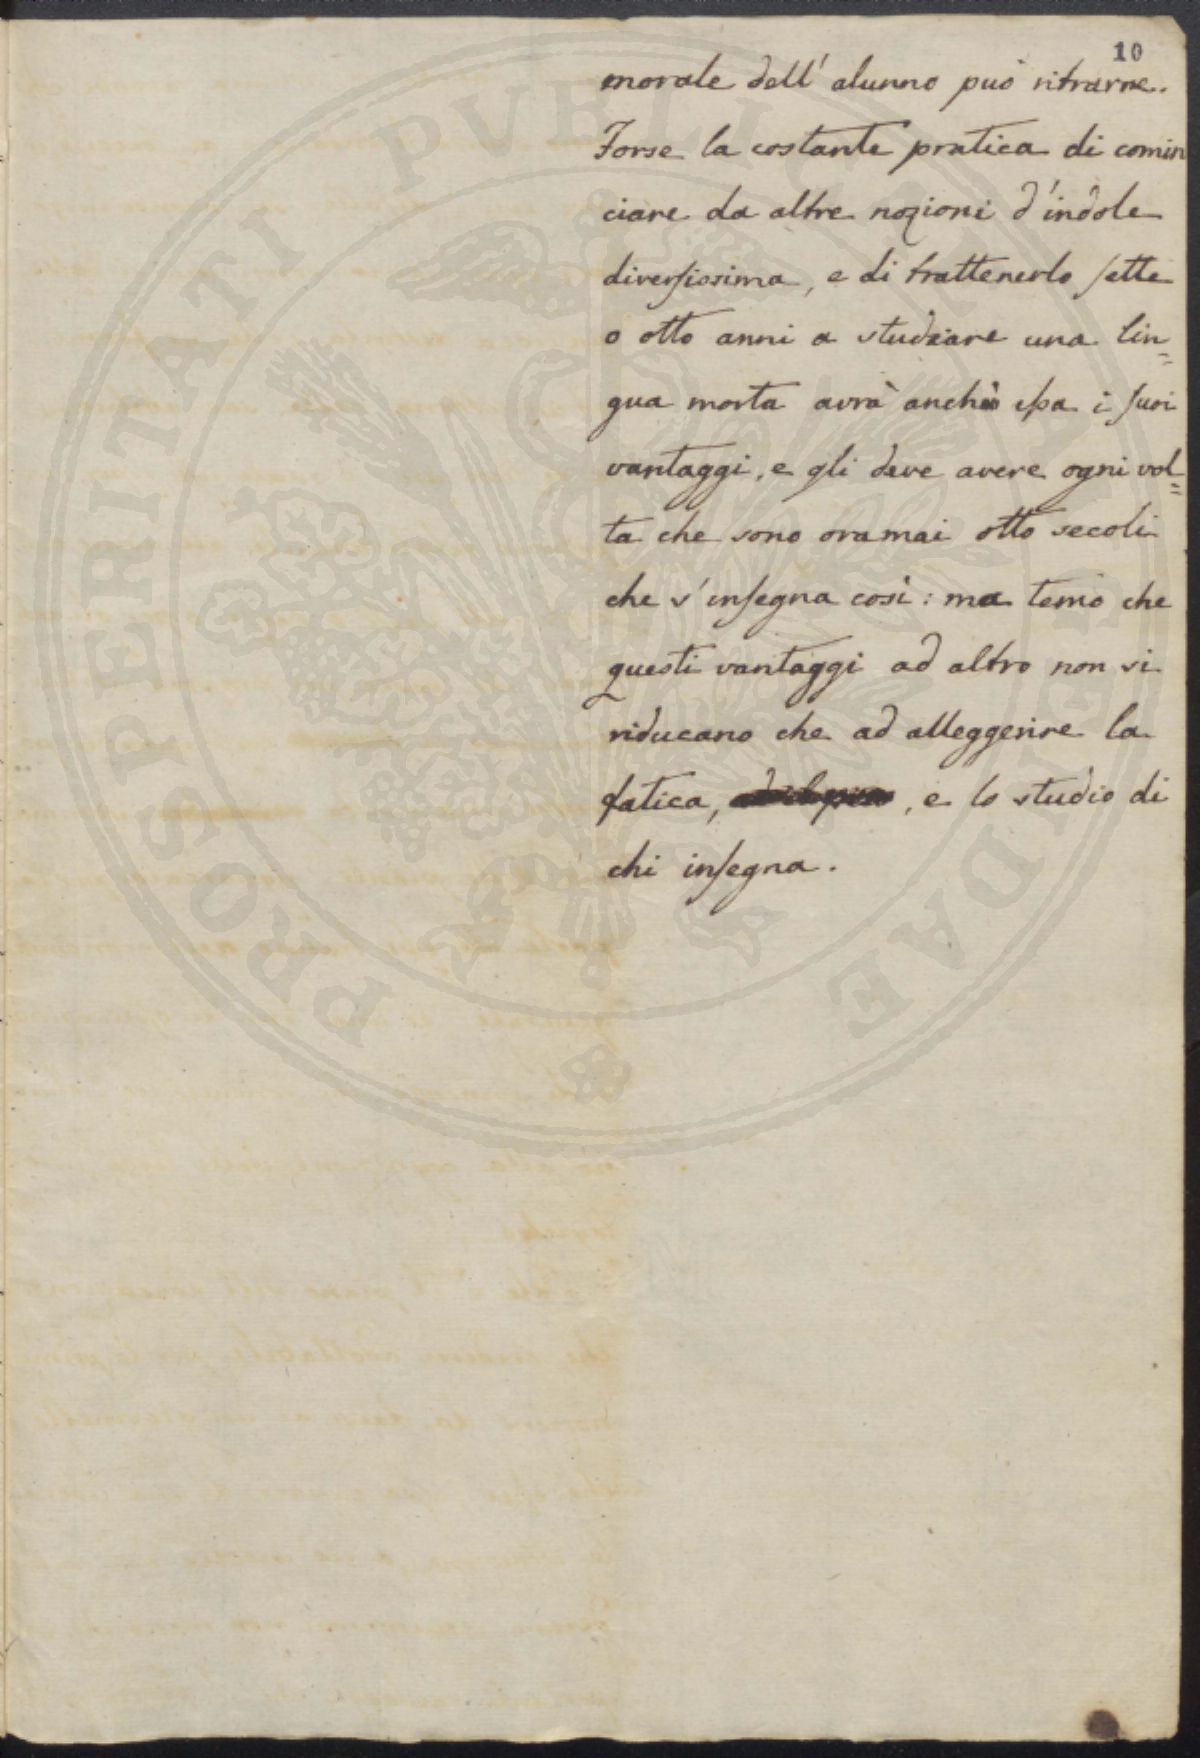 10
morale dell' alunno può ritrarne.
Forse la costante pratica di comin
ciare da altre nozioni d'indole
diversissima, e di trattenerlo sette
o otto anni a studiare una lin=
gua morta avrà anch' essa i suoi
vantaggi, e gli deve avere ogni vol=
ta che sono oramai otto secoli
che s'insegna così: ma temo che
questi vantaggi ad altro non si
riducano che ad alleggerire la
fatica, , e lo studio di
chi insegna.
PROSPERITATI PVBLICAE